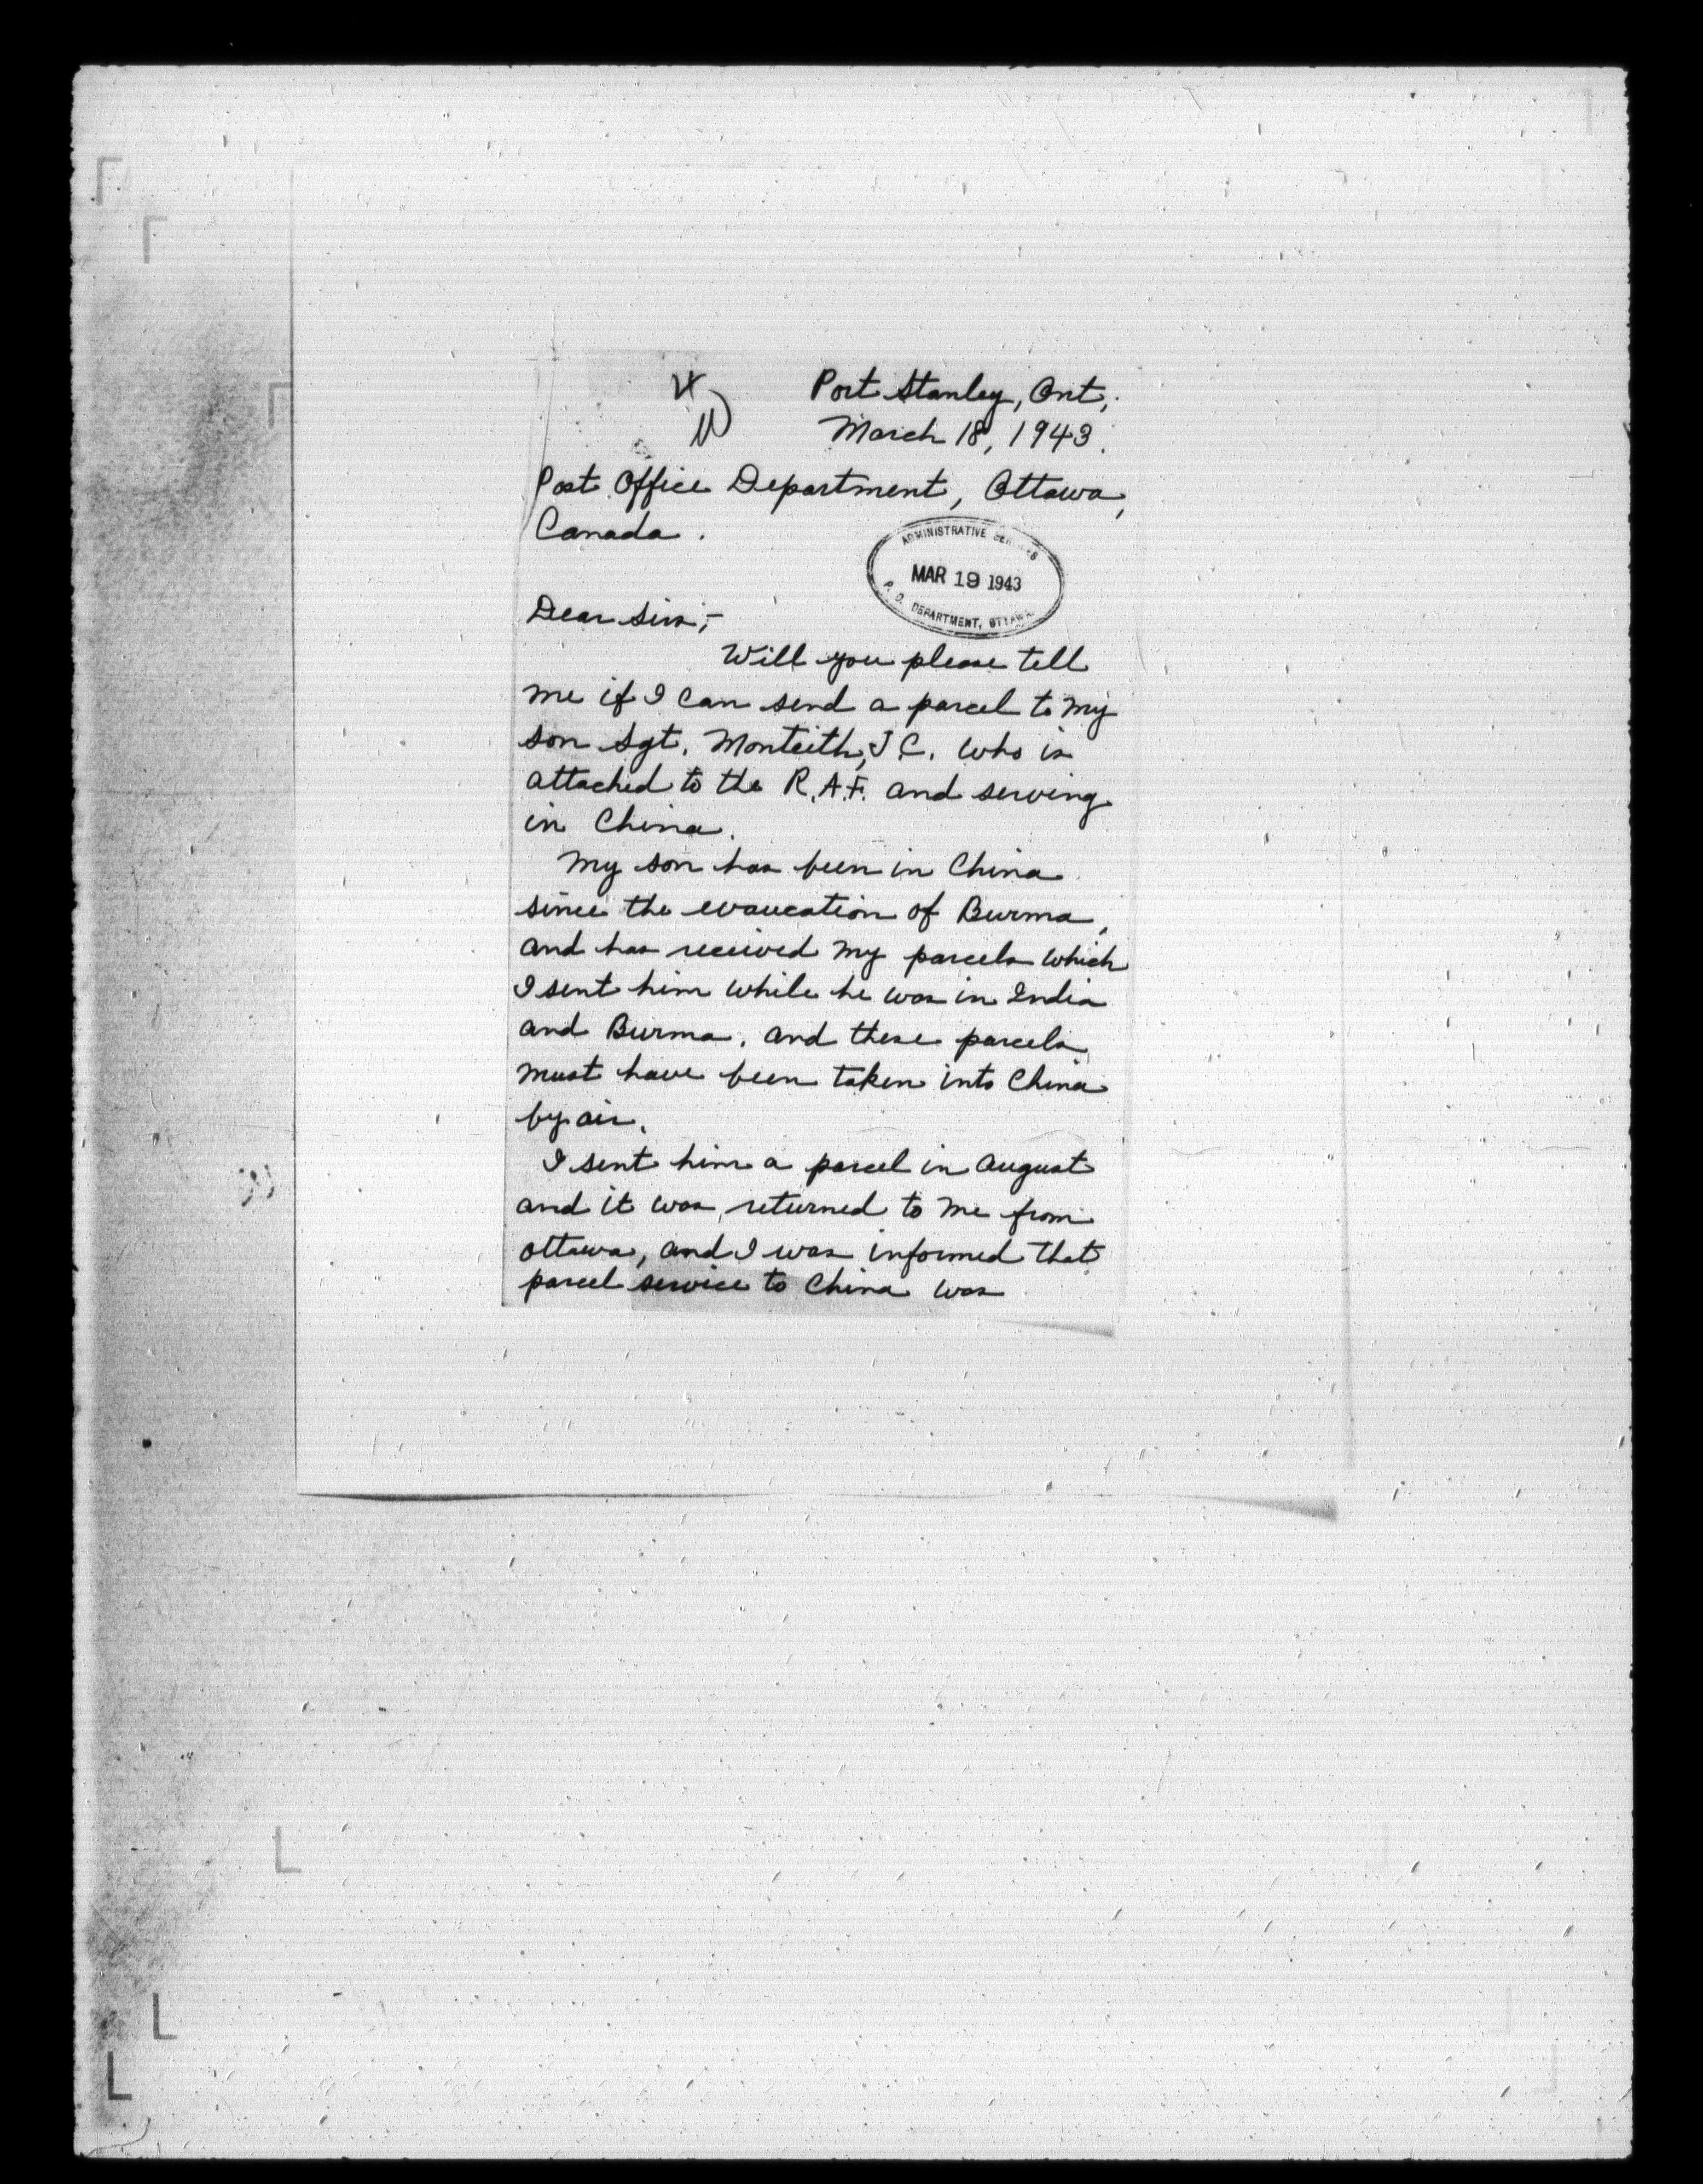 Port Stanley, Ont,
March 18, 1943.
Post Office Department, Ottawa,
Canada.
ADMINISTRATIVE
MAR 19 1943
P. O. DEPARTMENT, OTTAWA
Dear Sirs;-
Will you please tell
me if I can send a parcel to my
son Sgt. Monteith, J C. who is
attached to the R.A.F. and serving
in China.
My son has been in China
since the evaucation of Burma,
and has received my parcels which
I sent him while he was in India
and Burma. and these parcels
must have been taken into China
by air.
I sent him a parcel in August
and it was returned to me from
Ottawa, and I was informed that
parcel service to China was